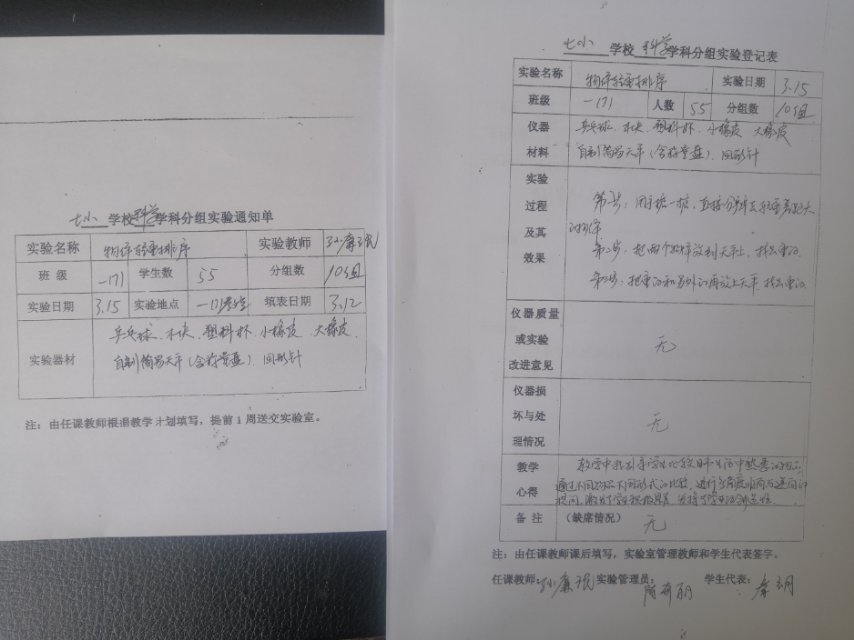 七小 学校 科学 学科分组实验通知单
实验名称 物体轻重排序 实验教师
班 级 一(7) 学生数 55 分组数 10组
实验日期 3.15 实验地点 一(7)教室 填表日期 3.12
实验器材 乒乓球、木块、塑料杯、小橡皮、大橡皮、
自制简易天平(含称量盘)、回形针
注:由任课教师根据教学计划填写,提前1周送交实验室。
七小 学校 科学 学科分组实验登记表
实验名称 物体轻重排序 实验日期 3.15
班级 一(7) 人数 55 分组数 10组
仪器材料 乒乓球、木块、塑料杯、小橡皮、大橡皮
自制简易天平(含称量盘)、回形针
实验过程及其效果
第一步:用手掂一掂,直接
第二步:把两个物体放到天平上,找出重的
第三步:把重的和另外的再放上天平,找出重的
仪器质量或实验改进意见 无
仪器损坏与处理情况 无
教学心得 教学中我引导学生比较日常生活中熟悉的物品
通过不同物体不同形式的比较,进行
提问,激发了学生
备 注 (缺席情况) 无
注:由任课教师课后填写,实验室管理教师和学生代表签字。
任课教师: 实验管理员: 学生代表: